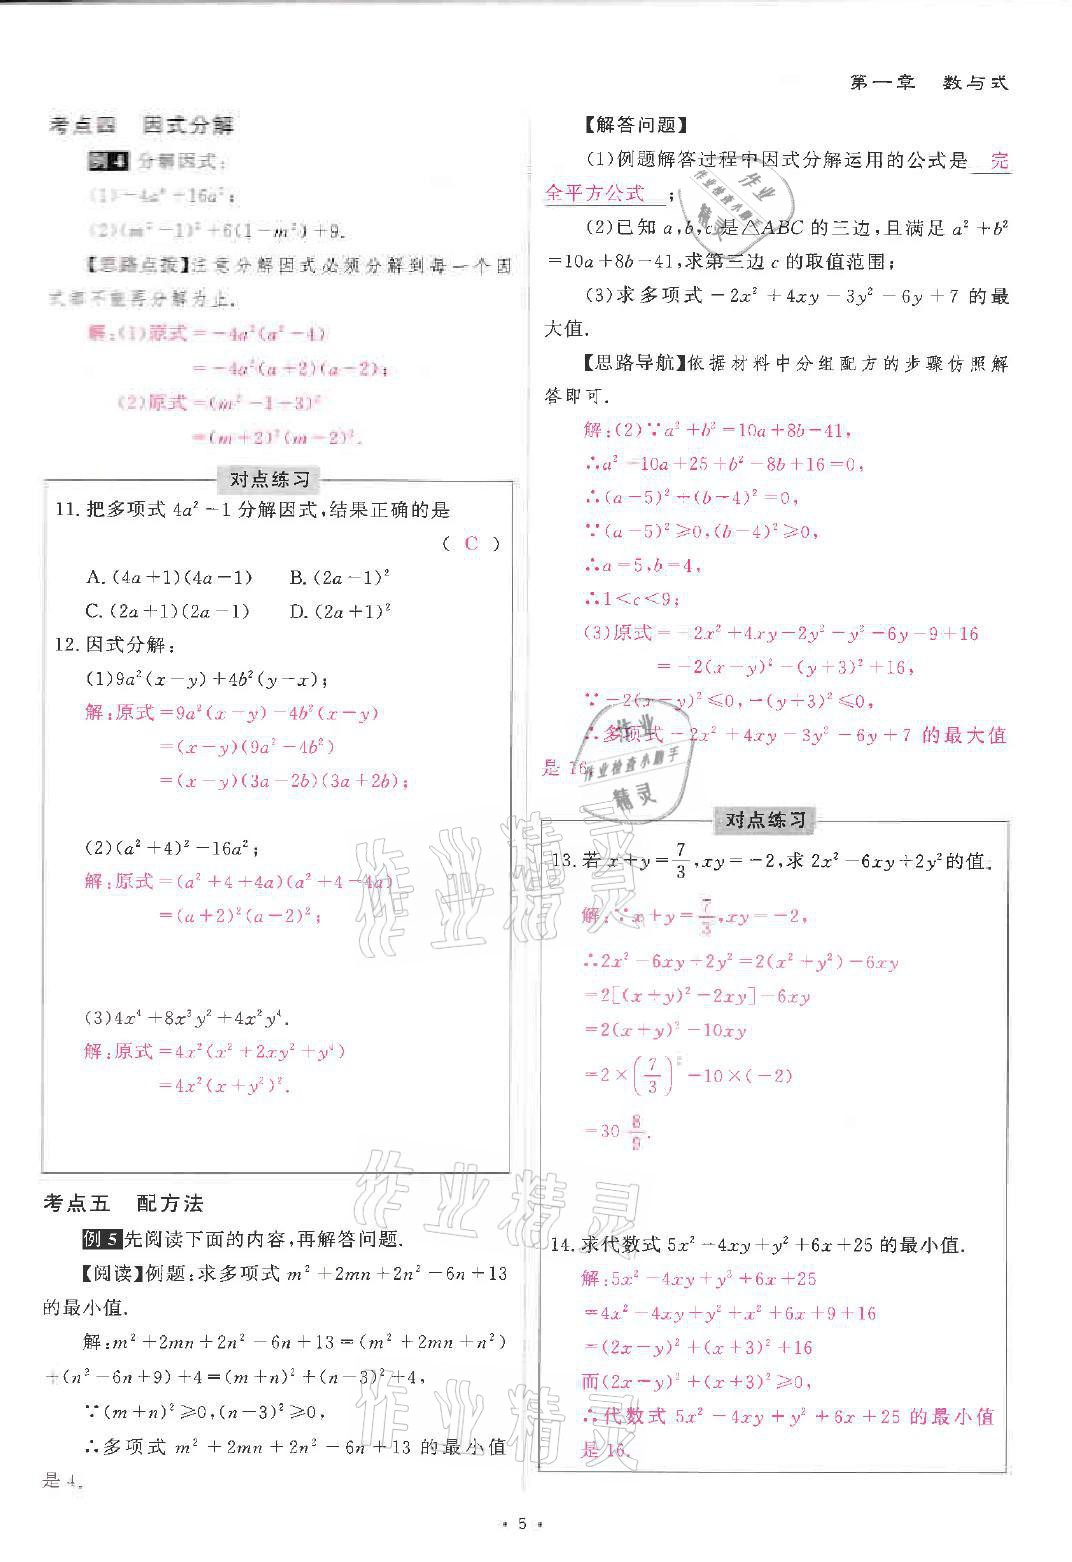 第一章 数与式
考点四 因式分解
例4 分解因式:
(1)-4a⁴+16a²;
(2)(m²-1)²+6(1-m²)+9.
【思路点拨】注意分解因式必须分解到每一个因
式都不能再分解为止.
解:(1)原式=-4a²(a²-4)
=-4a²(a+2)(a-2);
(2)原式=(m²-1-3)²
=(m+2)²(m-2)².
对点练习
11.把多项式4a²-1分解因式,结果正确的是
( C )
A.(4a+1)(4a-1) B.(2a-1)²
C.(2a+1)(2a-1) D.(2a+1)²
12.因式分解:
(1)9a²(x-y)+4b²(y-x);
解:原式=9a²(x-y)-4b²(x-y)
=(x-y)(9a²-4b²)
=(x-y)(3a-2b)(3a+2b);
(2)(a²+4)²-16a²;
解:原式=(a²+4+4a)(a²+4-4a)
=(a+2)²(a-2)²;
(3)4x⁴+8x³y²+4x²y⁴.
解:原式=4x²(x²+2xy²+y⁴)
=4x²(x+y²)².
考点五 配方法
例5 先阅读下面的内容,再解答问题.
【阅读】例题:求多项式m²+2mn+2n²-6n+13
的最小值.
解:m²+2mn+2n²-6n+13=(m²+2mn+n²)
+(n²-6n+9)+4=(m+n)²+(n-3)²+4,
∵(m+n)²≥0,(n-3)²≥0,
∴多项式m²+2mn+2n²-6n+13的最小值
是4.
【解答问题】
(1)例题解答过程中因式分解运用的公式是 完
全平方公式 ;
(2)已知a,b,c是△ABC的三边,且满足a²+b²
=10a+8b-41,求第三边c的取值范围;
(3)求多项式-2x²+4xy-3y²-6y+7的最
大值.
【思路导航】依据材料中分组配方的步骤仿照解
答即可.
解:(2)∵a²+b²=10a+8b-41,
∴a²-10a+25+b²-8b+16=0,
∴(a-5)²+(b-4)²=0,
∵(a-5)²≥0,(b-4)²≥0,
∴a=5,b=4,
∴1<c<9;
(3)原式=-2x²+4xy-2y²-y²-6y-9+16
=-2(x-y)²-(y+3)²+16,
∵-2(x-y)²≤0,-(y+3)²≤0,
∴多项式-2x²+4xy-3y²-6y+7的最大值
是16.
对点练习
13.若x+y=7/3,xy=-2,求2x²-6xy+2y²的值.
解:∵x+y=7/3,xy=-2,
∴2x²-6xy+2y²=2(x²+y²)-6xy
=2[(x+y)²-2xy]-6xy
=2(x+y)²-10xy
=2×(7/3)²-10×(-2)
=30 8/9.
14.求代数式5x²-4xy+y²+6x+25的最小值.
解:5x²-4xy+y²+6x+25
=4x²-4xy+y²+x²+6x+9+16
=(2x-y)²+(x+3)²+16
而(2x-y)²+(x+3)²≥0,
∴代数式5x²-4xy+y²+6x+25的最小值
是16.
作业
作业检查小助手
精灵
作业
作业检查小助手
精灵
作业精灵
作业精灵
作业精灵
作业精灵
· 5 ·